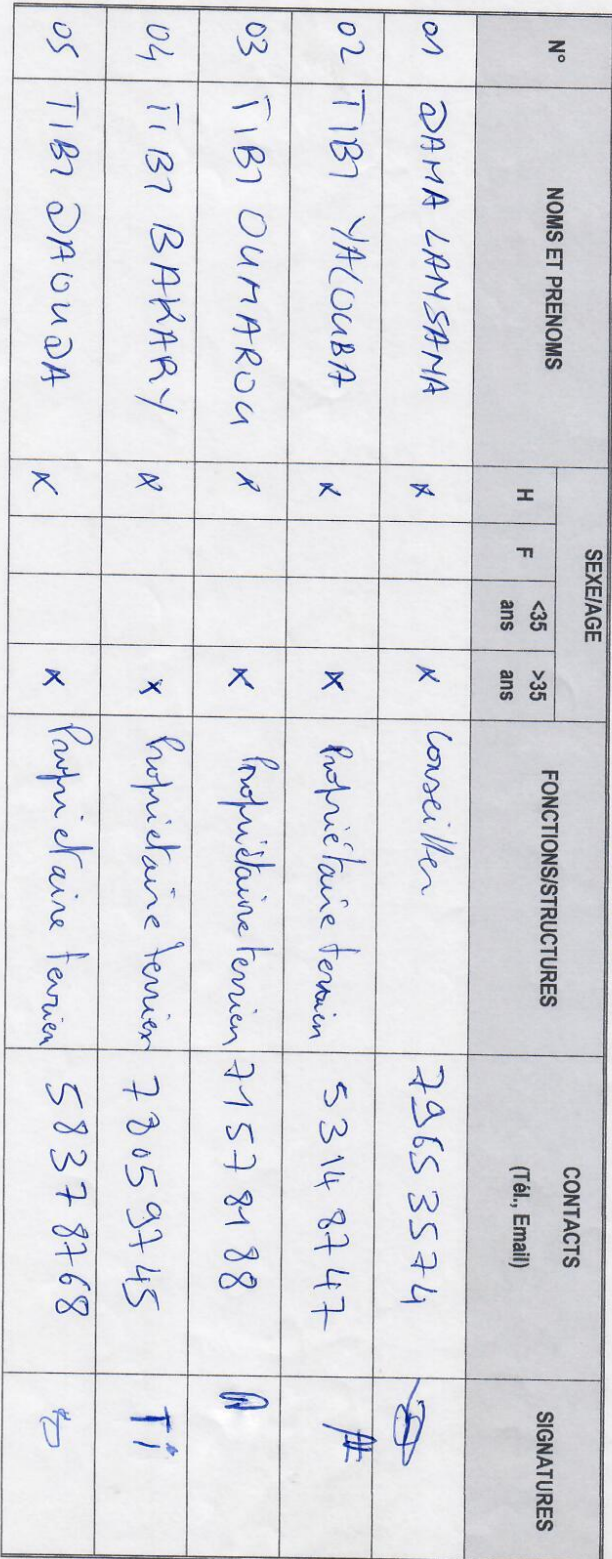 N° NOMS ET PRENOMS SEXE/AGE FONCTIONS/STRUCTURES CONTACTS (Tél., Email) SIGNATURES
H F <35 ans >35 ans
01 DAMA LANSANA x x Conseiller 79653574
02 TIBI YALOUBA x x Propriétaire terrien 53148747
03 TIBI OUMAROU x x Propriétaire terrien 71578188
04 TIBI BAKARY x x Propriétaire terrien 78059745 Ti
05 TIBI DAOUDA x x Propriétaire terrien 58378768